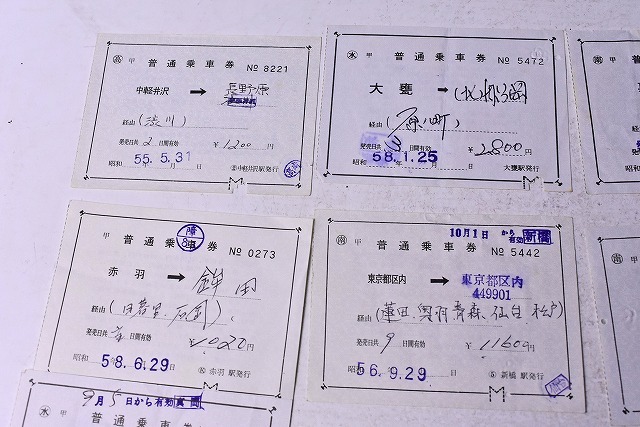 高 甲 普通乗車券 № 8221
中軽井沢 → 長野原
経由 (渋川)
発売日共 2 日間有効 ¥1200
昭和 55.5.31 年 月 日 中軽井沢駅発行
M
水 甲 普通乗車券 № 5472
大甕 →
経由 (原ノ町)
発売日共 日間有効 ¥2800
昭和 58.1.25 年 月 日 大甕駅発行
M
甲 普通乗車券 № 0273
赤羽 → 鉾田
経由 (日暮里、石岡)
発売日共 日間有効 ¥1020
昭和 58.6.29 赤羽駅発行
M
10月1日から有効 新橋
南 甲 普通乗車券 № 5442
東京都区内 → 東京都区内
449901
経由 (蓮田、奥羽、青森、仙台、松戸)
発売日共 9 日間有効 ¥11600
昭和 56.9.29 新橋駅発行
M
9月5日から有効
水 甲 普通乗車券